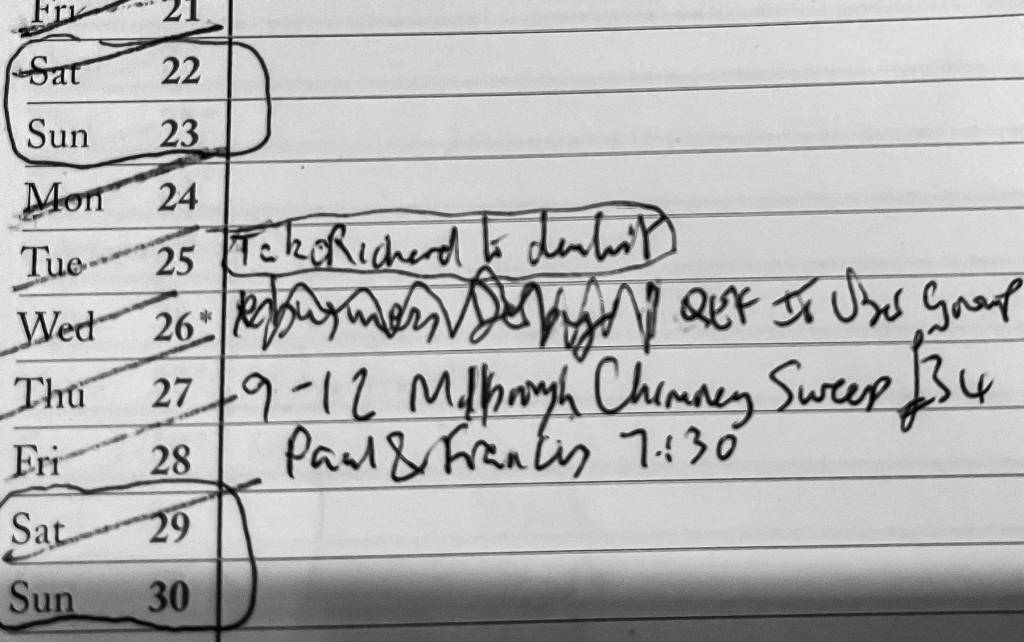 Fri 21
Sat 22
Sun 23
Mon 24
Tue 25 Take Richard to dentist
Wed 26* QEF IT User Group
Thu 27 9-12 Millbrough Chimney Sweep £34
Fri 28 Paul & Francis 7:30
Sat 29
Sun 30